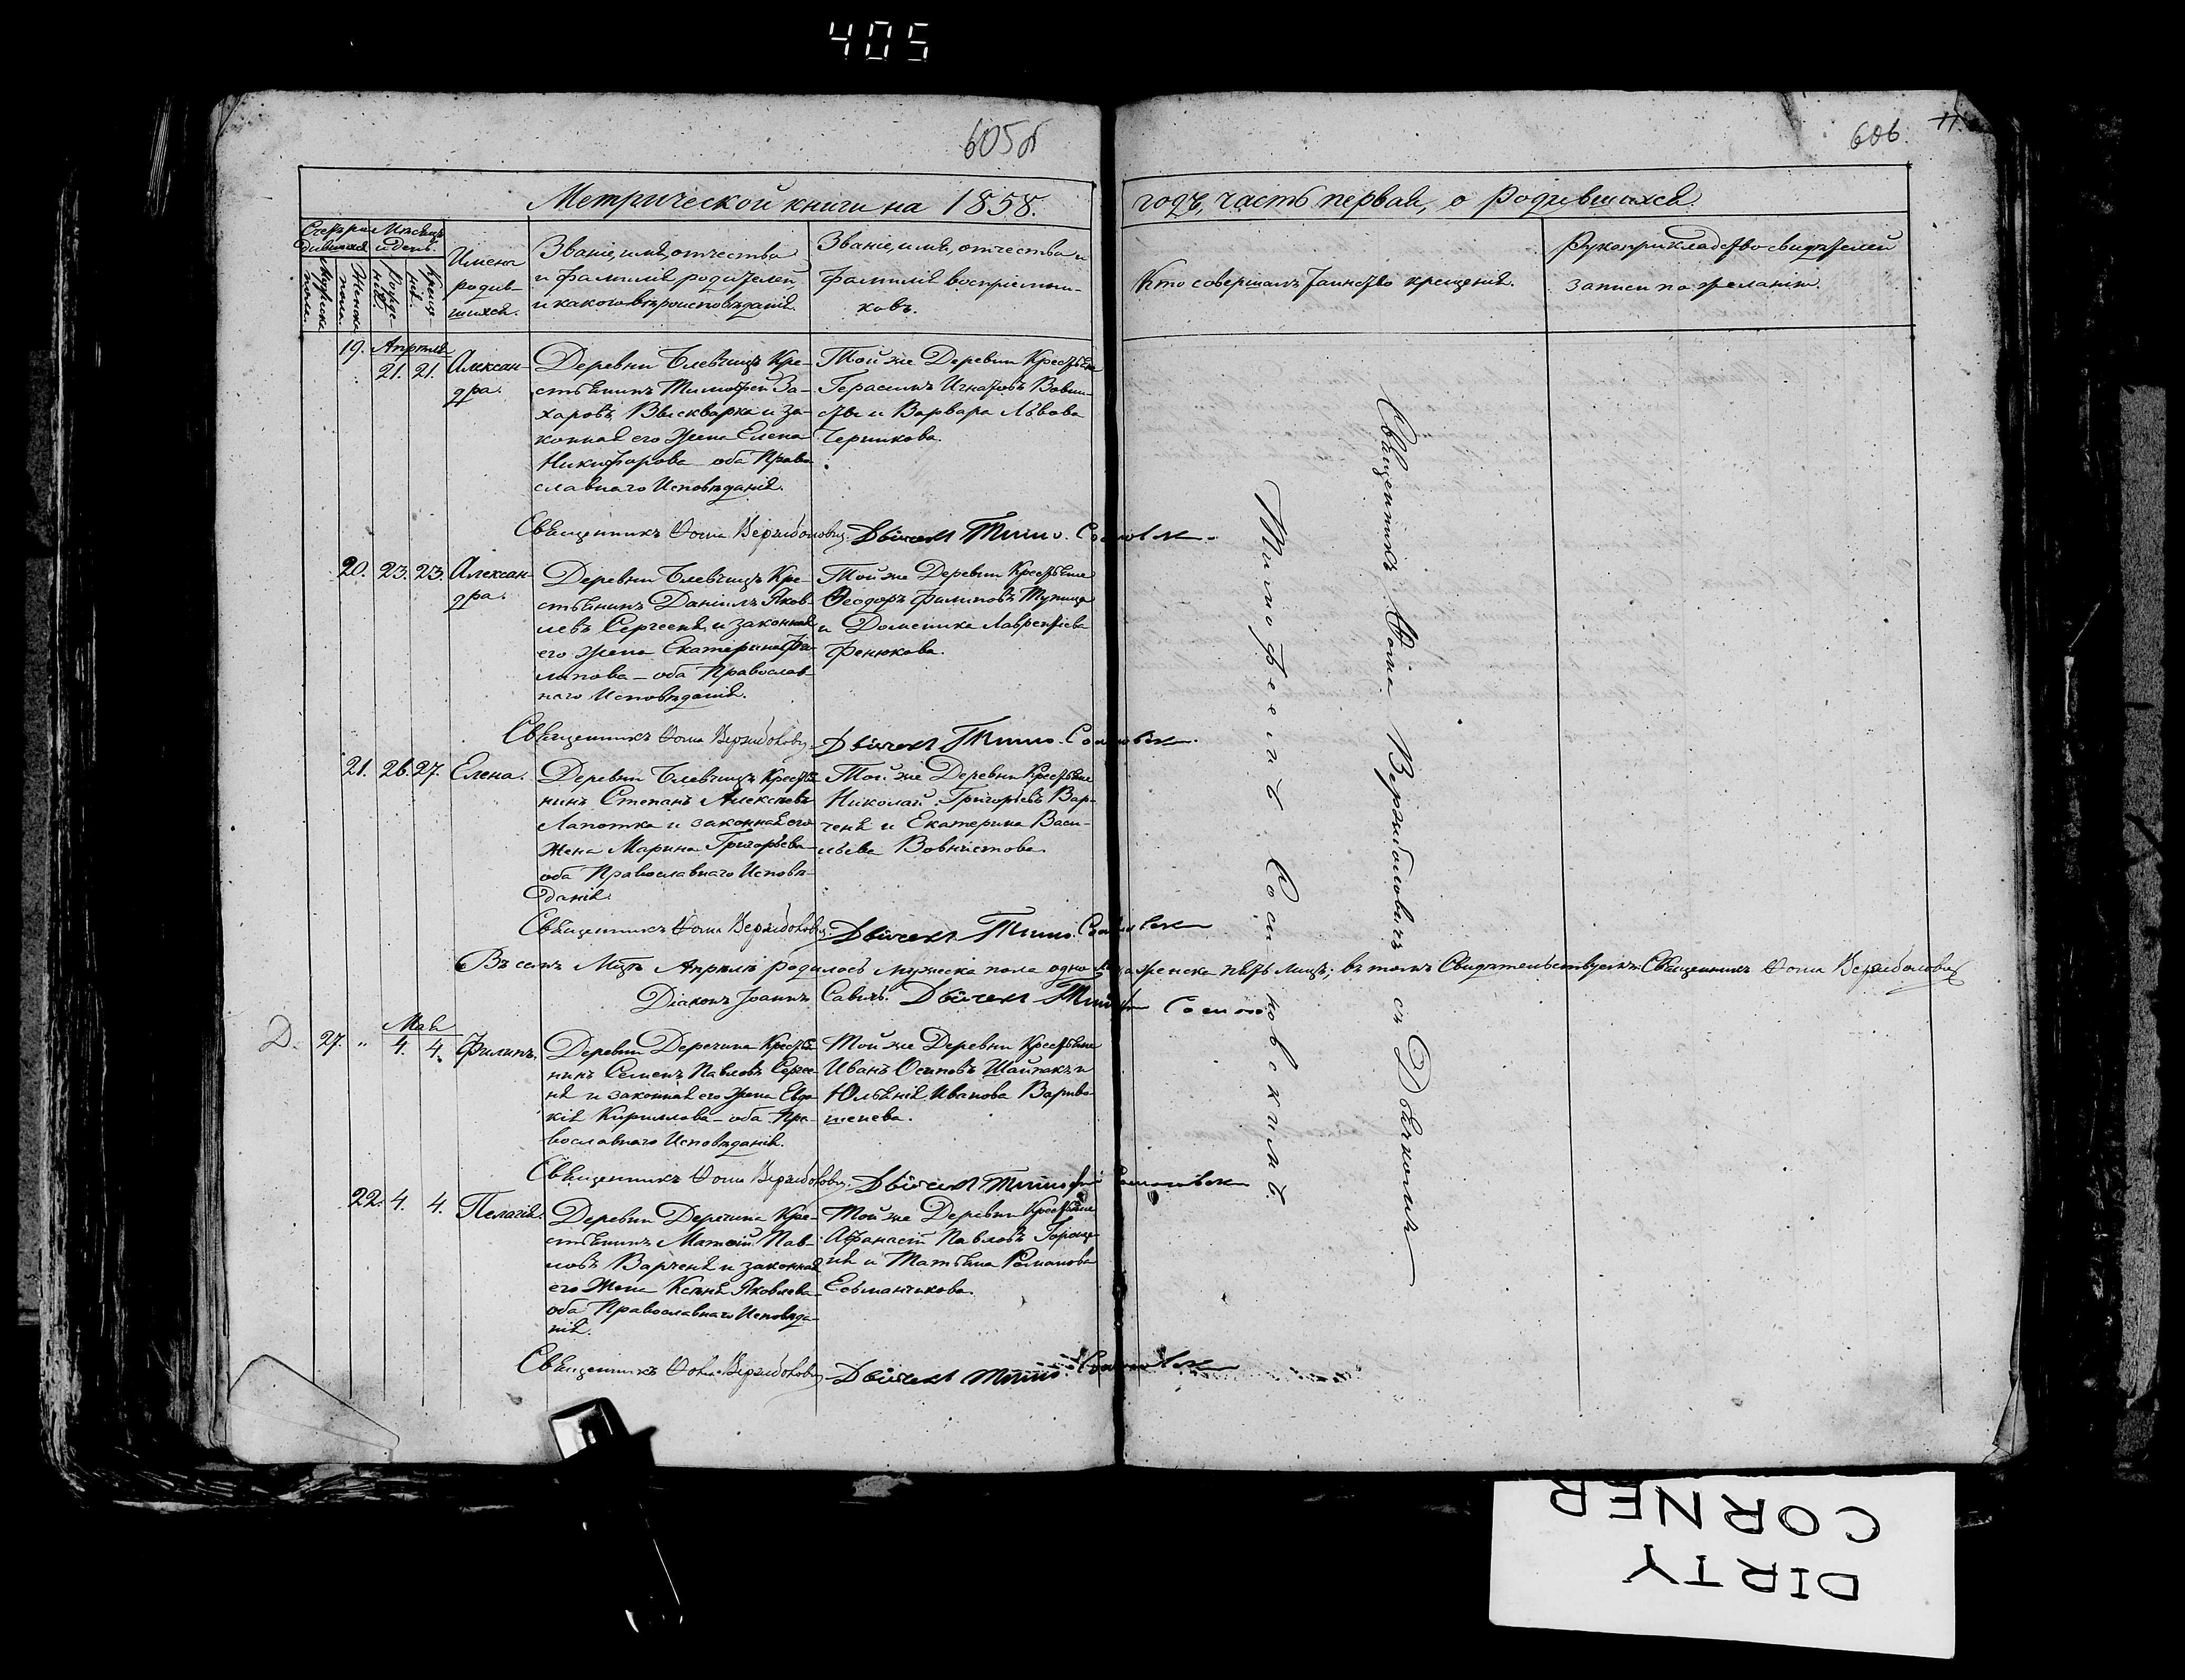 405
605б
606.
11.
Метрической книги на 1858.
годъ, часть первая, о родившихся.
Счетъ ро- Мѣсяцъ
дившихся и день.
Мужеска пола.
Женска пола.
Рожде-
нія.
Креще-
нія.
Имена
родив-
шихся.
Званіе, имя, отчество
и фамилія родителей,
и какого вѣроисповѣданія.
Званіе, имя, отчество и
фамилія воспріемни-
ковъ.
Кто совершалъ таинство крещенія.
Рукоприкладство свидѣтелей
записи по желанію.
19. Апрѣля
21. 21. Алексан-
дра.
Деревни Блевчицъ Кре-
стьянинъ Тимофей За-
харовъ Выскварка и за-
конная его Жена Елена
Никифорова оба Право
славнаго Исповѣданія.
Той же Деревни Крестьяне
Герасимъ Игнатовъ Вовчи-
и Варвара Львова
Черникова.
Священникъ Ѳома Вержболовичъ. Дьячекъ Тимо. Сосновск
20. 23. 23. Алексан-
дра.
Деревни Блевчицъ Кре-
стьянинъ Даніилъ Яков-
левъ Сергееня и законная
его Жена Екатерина Фи-
липова — оба Православ-
наго Исповѣданія.
Той же Деревни Крестьяне
Ѳеодоръ Филиповъ Тупица
и Доменика Лаврентіева
Фенюкова.
Священникъ Ѳома Вержболовичъ. Дьячекъ Тимо. Сосновск
21. 26. 27. Елена.
Деревни Блевчицъ Крестья
нинъ Степанъ Алексѣевъ
Лапотка и законная его
Жена Марина Григорьева
оба Православнаго Исповѣ-
данія.
Той же Деревни Крестьяне
Николай Григорьевъ Вар-
ченя и Екатерина Васи-
льева
Священникъ Ѳома Вержболовичъ. Дьячекъ Тимо. Сосновск
Въ семъ Мцѣ Апрѣлѣ родилось мужеска пола одно женска пять лицъ; въ томъ Свидѣтельствуемъ: Священникъ Ѳома Вержболовичъ
Діаконъ Іоаннъ Савичъ. Дьячекъ Тимоф Сосно
Д. 27. „ Мая
4. 4. Филипъ.
Деревни Деречина Крестья
нинъ Семенъ Павловъ Сергее
ня и законная его Жена Евдо
кія Кириллова — оба Пра-
вославнаго Исповѣданія.
Той же Деревни Крестьяне
Иванъ Осиповъ Шайпакъ и
Юльянія Иванова Вариво-
шенева.
Священникъ Ѳома Вержболовичъ. Дьячекъ Тимофей Сосновск
22. 4. 4. Пелагія.
Деревни Деречина Кре-
стьянинъ Матвій Пав-
ловъ Варченя и законная
его Жена Ксенія Яковлева
оба Православнаго Исповѣда-
нія.
Той же Деревни Крестьяне
Афанасій Павловъ
и Татьяна Романова
Священникъ Ѳома Вержболовичъ Дьячекъ Тимо. Сосновск
Священникъ Ѳома Вержболовичъ съ Дьячкомъ
Тимофеемъ Сосновскимъ.
DIRTY
CORNER